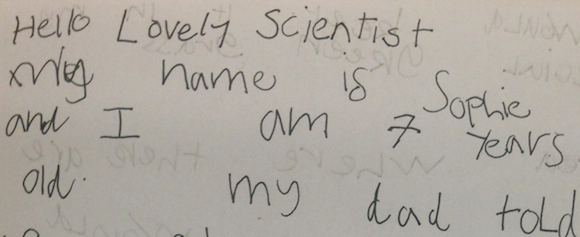 Hello Lovely Scientist
my name is Sophie
and I am 7 years
old. my dad told